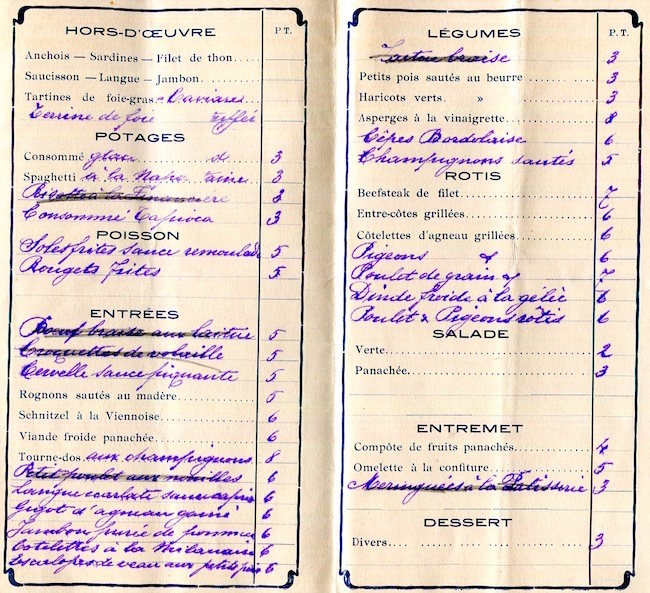 HORS-D'ŒUVRE P.T.
Anchois — Sardines — Filet de thon.....
Saucisson — Langue — Jambon.
Tartines de foie-gras - Caviares
Terrine de foie truffée
POTAGES
Consommé glace 3
Spaghetti à la Napolitaine 3
Risotto à la Financière 3
Consommé Tapioca 3
POISSON
Soles frites sauce remoulade 5
Rougets frites 5
ENTRÉES
Bœuf braise aux laitue 5
Croquettes de volaille 5
Cervelle sauce piquante 5
Rognons sautés au madère..... 5
Schnitzel à la Viennoise..... 6
Viande froide panachée..... 6
Tourne-dos aux champignons 8
Petit poulet aux nouilles 6
Langue ecarlate sauce capres 6
Gigot d'agneau garni 6
Jambon purée de pommes 6
Cotelettes à la Milanaise 6
Escalopes de veau aux petits pois 6
LÉGUMES P.T.
braise 3
Petits pois sautés au beurre ....... 3
Haricots verts. » ....... 3
Asperges à la vinaigrette....... 8
Cêpes Bordelaise 6
Champignons sautés 5
ROTIS
Beefsteak de filet....... 7
Entre-côtes grillées....... 6
Côtelettes d'agneau grillées....... 6
Pigeons 6
Poulet de grain 7
Dinde froide à la gélée 6
Poulet & Pigeons rôtis 6
SALADE
Verte....... 2
Panachée....... 3
ENTREMET
Compôte de fruits panachés. 4
Omelette à la confiture....... 5
Meringuées à la Patisserie 3
DESSERT
Divers....... 3